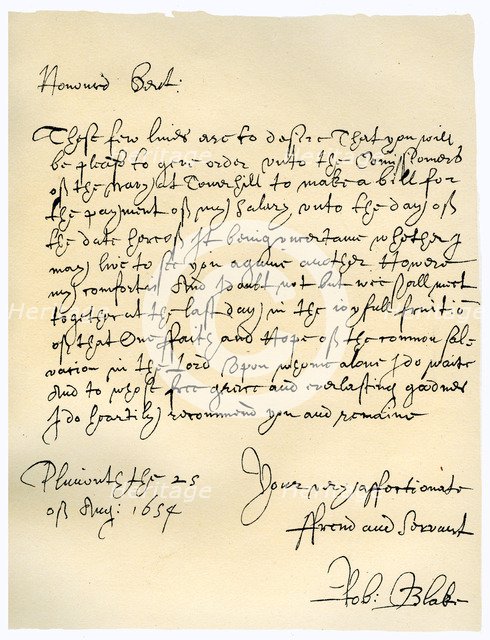 Honourd Bert:
These few lines are to desire That you will
be pleasd to give order unto the Comissioners
of the Navy at Towerhill to make a bill for
the payment of my Salary unto the day of
the date hereof It being uncertaine whether I
may live to see you againe another However
my comfort is And I doubt not but wee shall meet
together at the last day in the ioyfull fruitiō
of that One ffaith and Hope of the common Sal-
vation in the Lord Upon whome alone I do waite
And to whose free grace and everlasting goodnes
I do heartily recommend you and remaine
Plimouth the 25
of Aug: 1654
Your very affectionate
ffrend and Servant
Rob: Blake
Heritage
Heritage
Heritage
Heritage
Heritage
Heritage